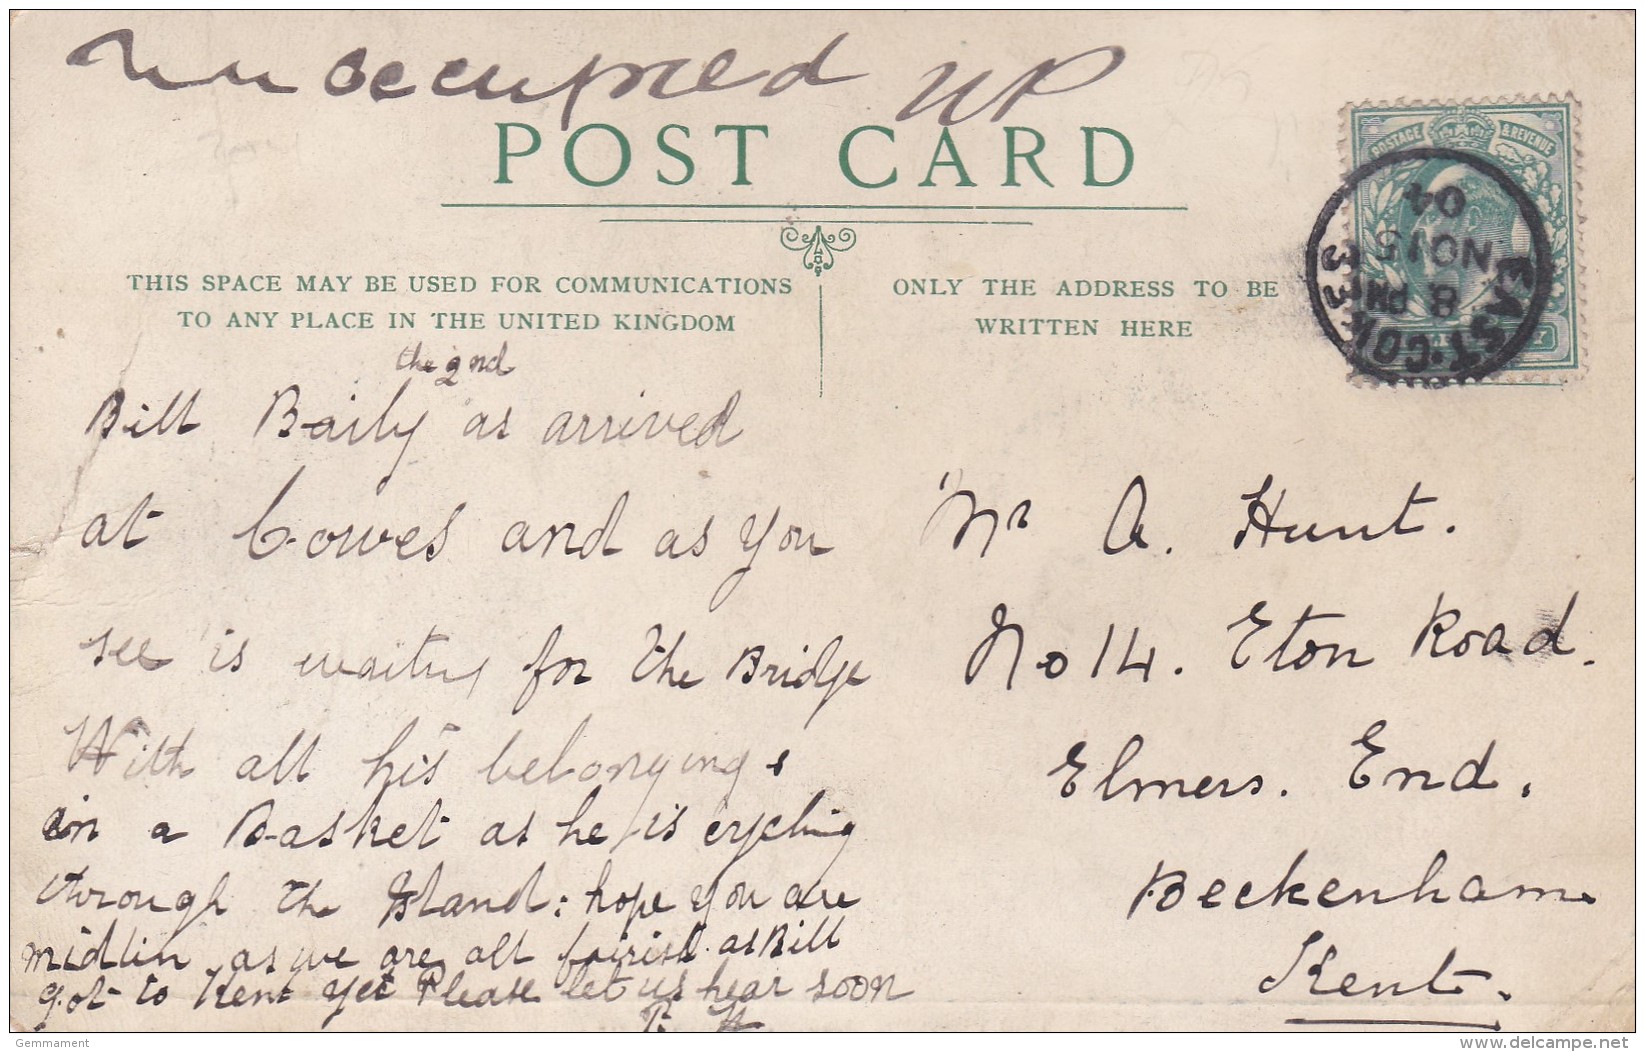 unoccupied UP
POST CARD
POSTAGE & REVENUE
EAST·COWES
33
8 PM
NO 15
04
THIS SPACE MAY BE USED FOR COMMUNICATIONS
TO ANY PLACE IN THE UNITED KINGDOM
ONLY THE ADDRESS TO BE
WRITTEN HERE
the 2nd
Bill Baily as arrived
at Cowes and as you
see is waiting for the Bridge
With all his belongings
in a Basket as he is cycling
through the Island: hope you are
midlin as we are all fairish. as Bill
got to Kent yet Please let us hear soon
T. H
Mr A. Hunt.
No 14. Eton Road.
Elmers. End.
Beckenham.
Kent.
Gemmament
delcampe.net